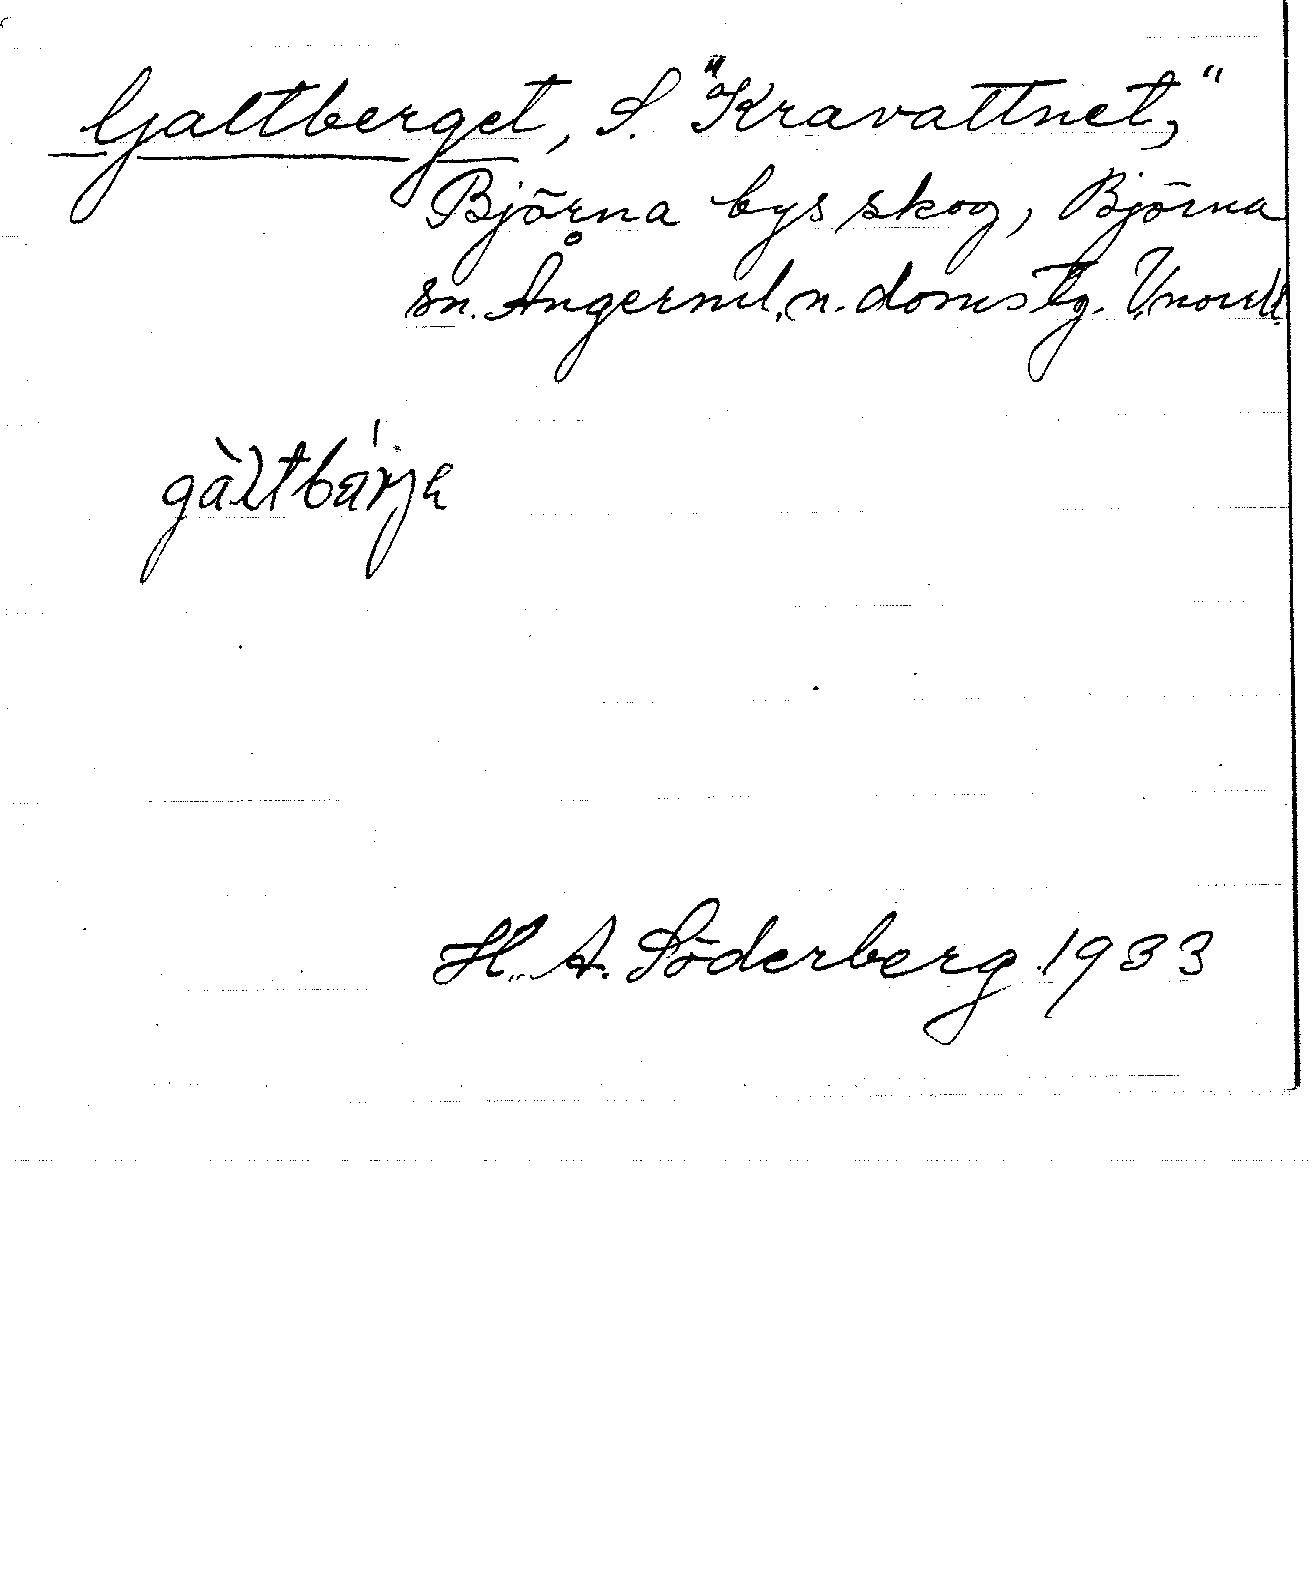 Galtberget, S. "Kravattnet,"
Björna bys skog, Björna
sn. Ångerml. n. domstg. V.norrl.
gàltbárje
H. A. Söderberg 1933